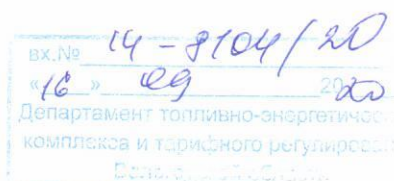 вх.№ 14-8104/20
«16» 09 2020
Департамент топливно-энергетичес
комплекса и тарифного регулирова
области